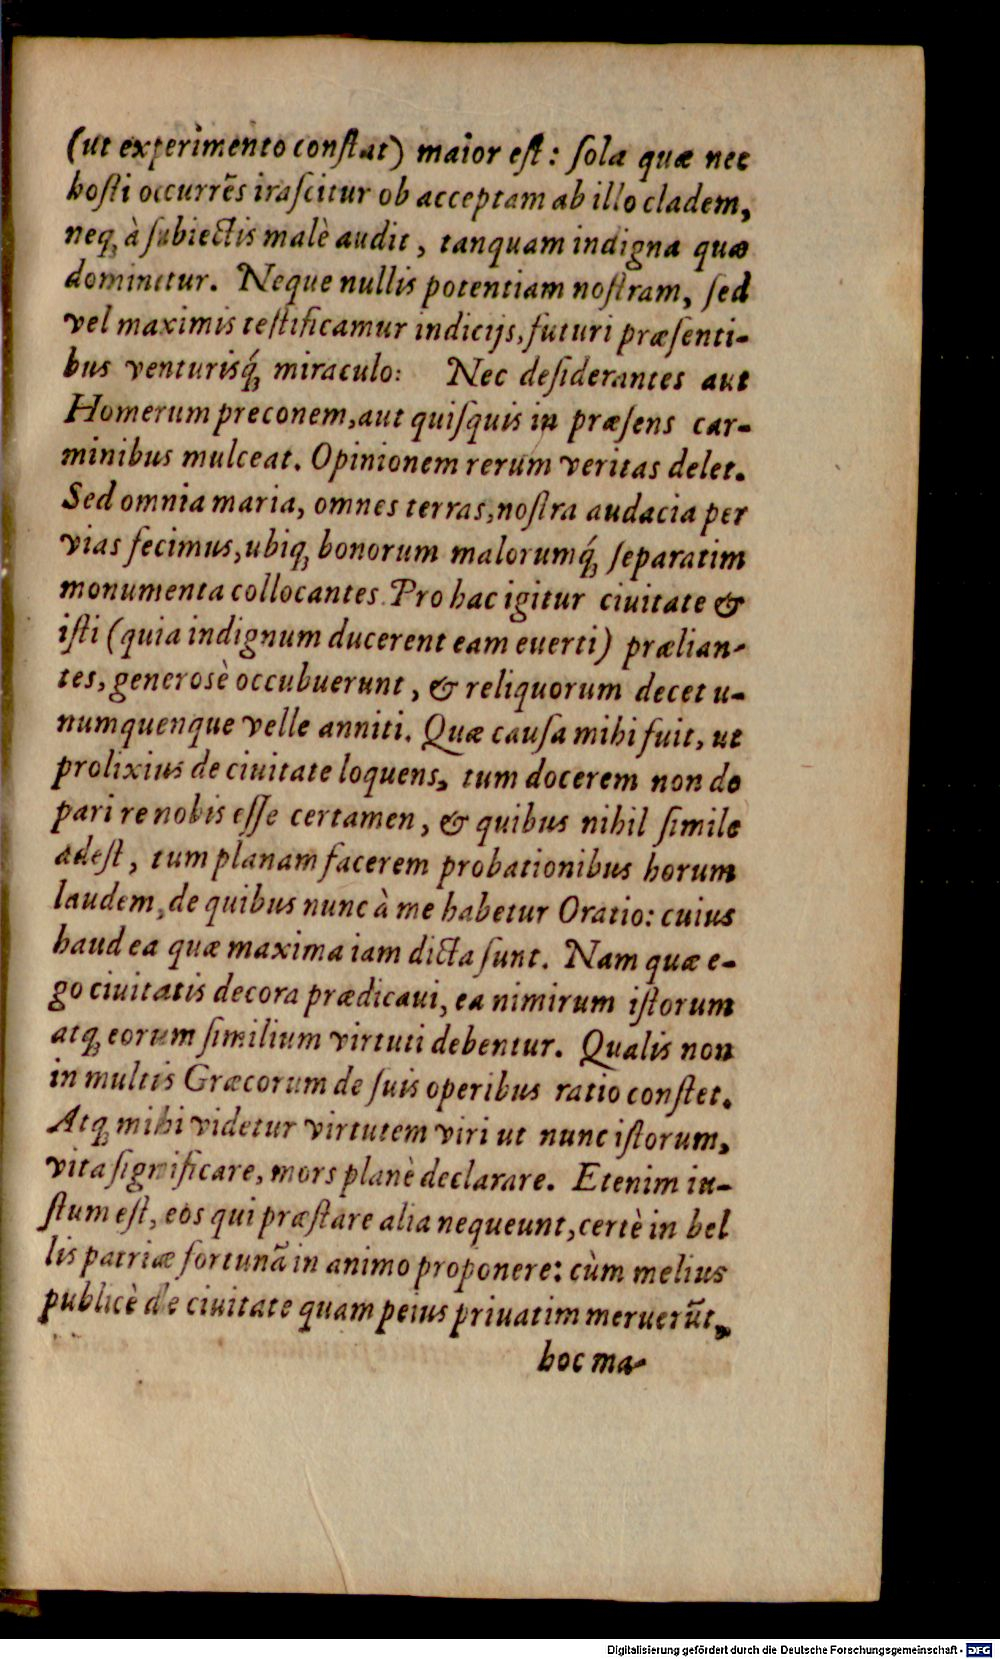 (ut experimento conſtat) maior eſt: ſola quæ nec
hoſti occurrẽs iraſcitur ob acceptam ab illo cladem,
neqꝫ à ſubiectis malè audit, tanquam indigna quæ
dominetur. Neque nullis potentiam noſtram, ſed
vel maximis teſtificamur indicijs, futuri præſenti-
bus venturisq́ꝫ miraculo: Nec deſiderantes aut
Homerum preconem, aut quiſquis in præſens car-
minibus mulceat. Opinionem rerum veritas delet.
Sed omnia maria, omnes terras, noſtra audacia per
vias fecimus, ubiqꝫ bonorum malorumq́ꝫ ſeparatim
monumenta collocantes. Pro hac igitur ciuitate &
iſti (quia indignum ducerent eam euerti) prælian-
tes, generosè occubuerunt, & reliquorum decet u-
numquenque velle anniti. Quæ cauſa mihi fuit, ut
prolixius de ciuitate loquens, tum docerem non de
pari re nobis eſſe certamen, & quibus nihil ſimile
adeſt, tum planam facerem probationibus horum
laudem, de quibus nunc à me habetur Oratio: cuius
haud ea quæ maxima iam dicta ſunt. Nam quæ e-
go ciuitatis decora prædicaui, ea nimirum iſtorum
atqꝫ eorum ſimilium virtuti debentur. Qualis non
in multis Græcorum de ſuis operibus ratio conſtet.
Atqꝫ mihi videtur virtutem viri ut nunc iſtorum,
vita ſignificare, mors planè declarare. Etenim iu-
ſtum eſt, eos qui præſtare alia nequeunt, certè in bel
lis patriæ fortunã in animo proponere: cùm melius
publicè de ciuitate quam peius priuatim meruerũt,
hoc ma-
Digitalisierung gefördert durch die Deutsche Forschungsgemeinschaft - DFG